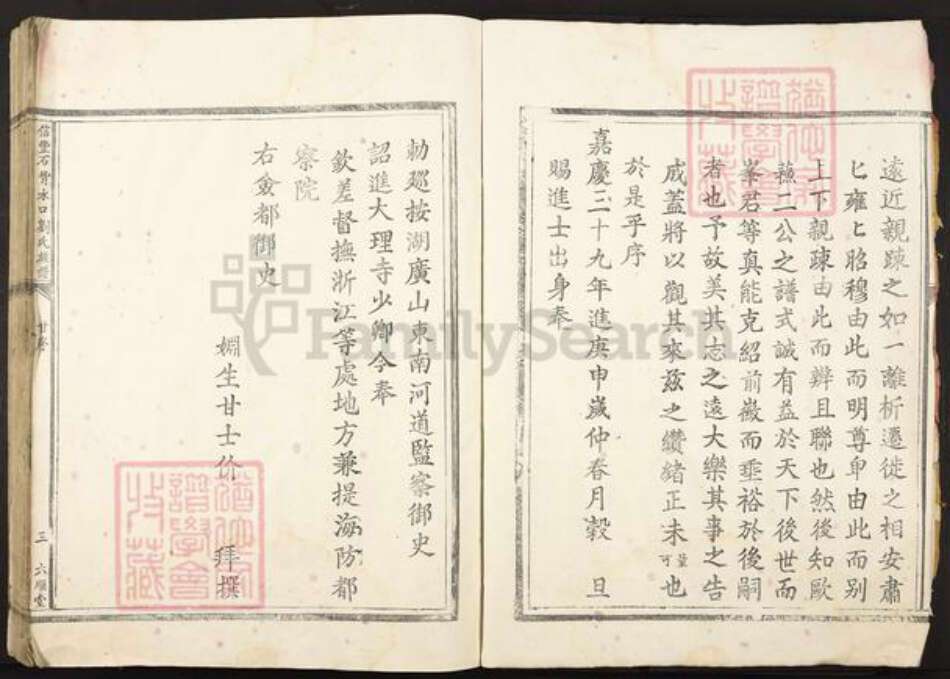 遠近親踈之如一離析遷徙之相安肅
匕雍匕昭穆由此而明尊卑由此而别
上下親踈由此而辨且聯也然後知歐
蘓二公之譜式誠有益於天下後世而
峯君等真能克紹前徽而埀裕於後嗣
者也予故美其志之遠大樂其事之告
成蓋將以觀其來玆之纘緒正未可量也
於是乎序
嘉慶三十九年進庚申歲仲春月穀旦
賜進士出身奉
勅廵按湖廣山東南河道監察御史
詔進大理寺少卿今奉
欽差督撫浙江等處地方兼提海防都
察院
右僉都御史
姻生甘士价 拜撰
信豐石背水口劉氏族譜
三
六順堂
譜學會
收藏
譜學會
收藏
FamilySearch